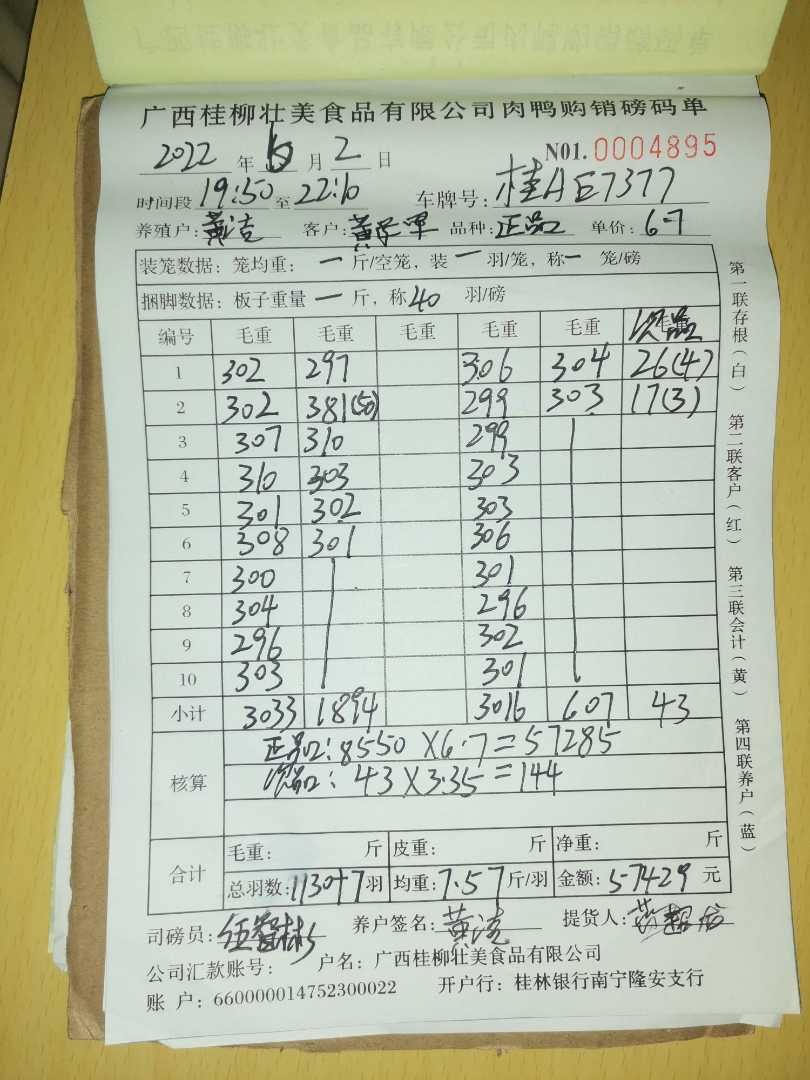 广西桂柳壮美食品有限公司肉鸭购销磅码单
2022 年 月 2 日 N01. 0004895
时间段 19:50 至 22:10 车牌号: 桂AE7377
养殖户: 黄洁 客户: 品种: 正品 单价: 6.7
装笼数据: 笼均重: 一 斤/空笼, 装 一 羽/笼, 称 一 笼/磅
捆脚数据: 板子重量 一 斤, 称 40 羽/磅
编号 毛重 毛重 毛重 毛重 毛重 次品
1 302 297 306 304 26(4)
2 302 381(50) 299 303 17(3)
3 307 310 299
4 310 303 303
5 301 302 303
6 308 301 306
7 300 301
8 304 296
9 296 302
10 303 301
小计 3033 1894 3016 607 43
核算 正品: 8550×6.7=57285
次品: 43×3.35=144
合计 毛重: 斤 皮重: 斤 净重: 斤
总羽数: 1130+7 羽 均重: 7.57 斤/羽 金额: 57429 元
司磅员: 养户签名: 黄洁 提货人:
公司汇款账号: 户名: 广西桂柳壮美食品有限公司
账 户: 660000014752300022 开户行: 桂林银行南宁隆安支行
第一联存根(白) 第二联客户(红) 第三联会计(黄) 第四联养户(蓝)